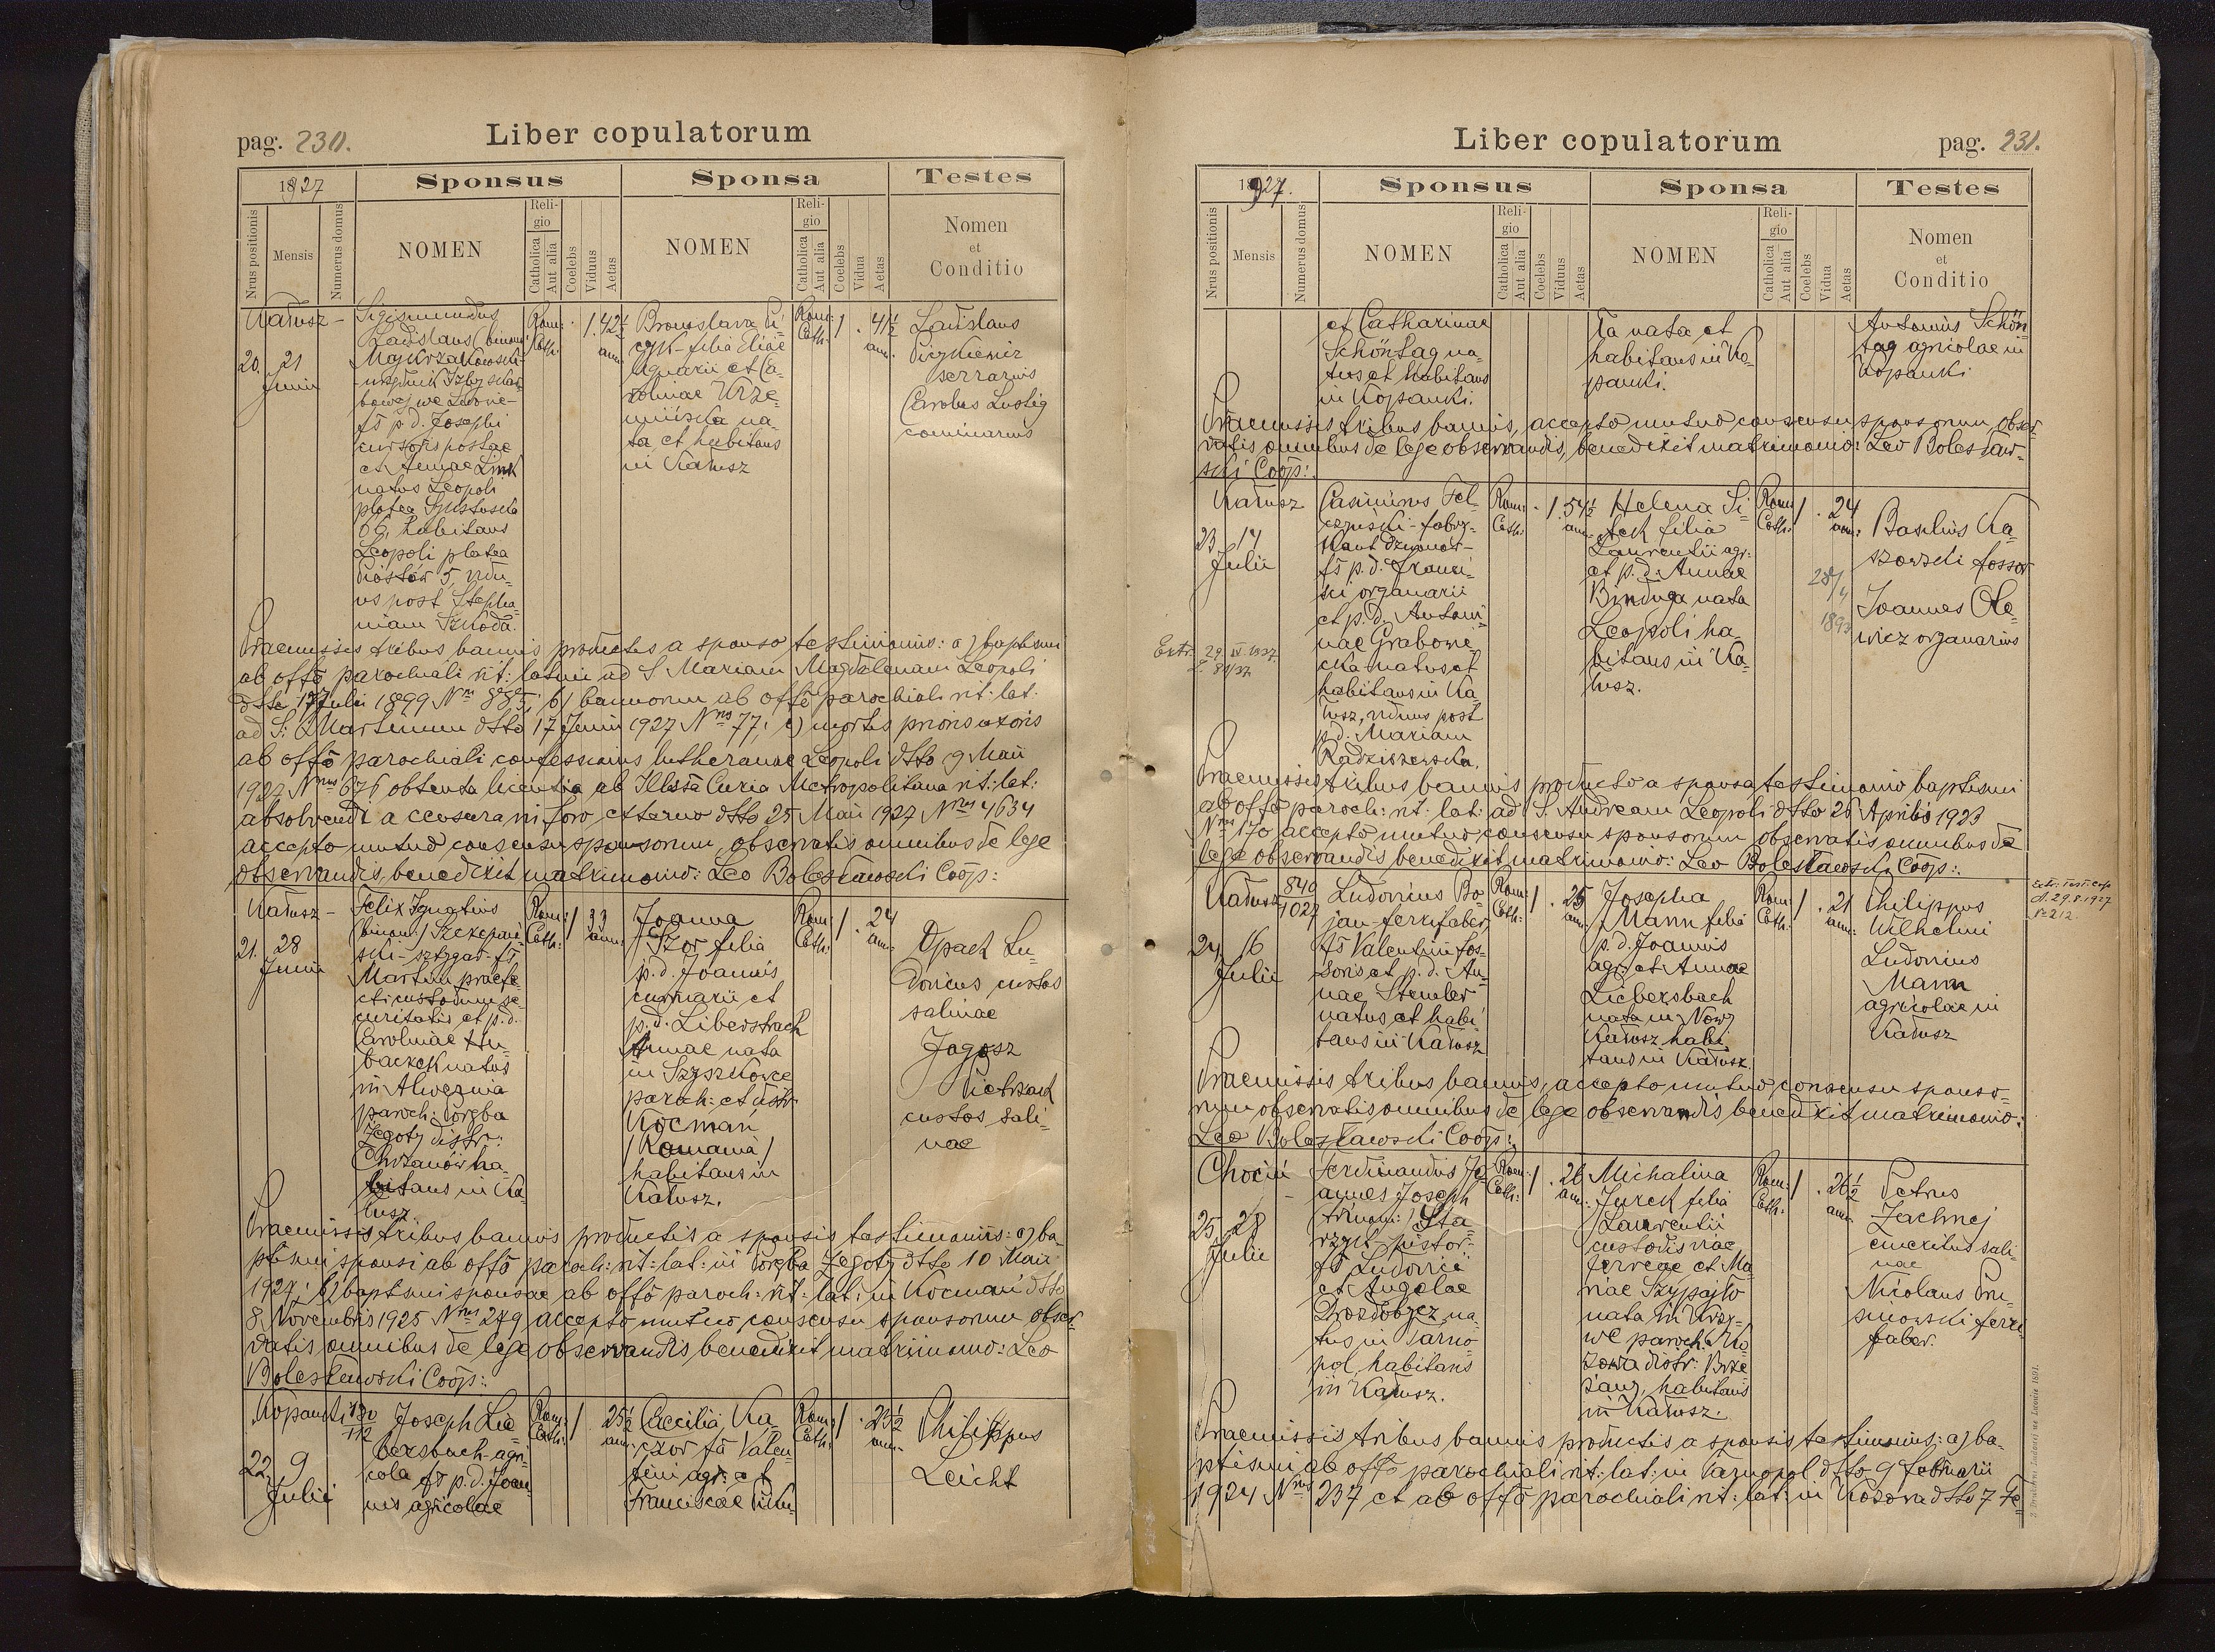 pag. 230.
Liber copulatorum
1927
Sponsus
Sponsa
Testes
Nrus positionis
Mensis
Numerus domus
NOMEN
Religio
Catholica
Aut alia
Coelebs
Viduus
Aetas
NOMEN
Religio
Catholica
Aut alia
Coelebs
Vidua
Aetas
Nomen
et
Conditio
Kałusz –
20. 21
Junii
Sigismundus
Ladislaus (binom:)
Majkrzakowski
urzędnik Izby skar-
bowej we Lwowie –
fs p. d. Josephi
cursoris postae
et Annae Link
natus Leopoli
platea
66, habitans
Leopoli platea
Piastów 5, vidu-
us post Stepha-
niam
Rom: Cath:
1. 42½ ann:
Bronislava
filia Eliae
et Ca-
rolinae Krze-
mińska na-
ta et habitans
in Kałusz
Rom: Cath:
1 . 41½ ann.
Ladislaus
Pietkiewicz
serrarius
Carolus Lustig
Praemissis tribus bannis productis a sponso testimoniis: a) baptismi
ab offo parochiali rit: latini ad S Mariam Magdalenam Leopoli
dtto 17 Julii 1899 Nrus 885; b) bannorum ab offo parochiali rit: lat:
ad S: Martinum dtto 17 Junii 1927 Nrus 77; c) mortis prioris uxoris
ab offo parochiali confessionis lutheranae Leopoli dtto 9 Maii
1927 Nrus 676 obtenta licentia ab Illssa Curia Metropolitana rit: lat:
absolvendi a censura in foro externo dtto 25 Maii 1927 Nrus 4634
accepto mutuo consensu sponsorum, observatis omnibus de lege
observandis, benedixit matrimonio: Leo Bolesławski Coop:
Kałusz –
21. 28
Junii
Felix Ignatius
(binom:) Szczepań-
ski – sztygar – fs
Martini praefe-
cti custodum se-
curitatis et p. d.
Carolinae Hu-
baczek natus
in Alwernia
paroch: Poręba
Żegoty distr:
Chrzanów ha-
bitans in Ka-
łusz
Rom: Cath:
1 33 ann:
Joanna
Szor filia
p. d. Joannis
et
p. d.
Annae nata
in Szyszkowce
paroch: et distr:
Kocman
/Romania/
habitans in
Kałusz.
Rom: Cath:
1 . 24 ann.
Opach Lu-
dovicus custos
salinae
Jagosz
Pietrzak
custos sali-
nae
Praemissis tribus bannis productis a sponsis testimoniis: a) ba-
ptismi sponsi ab offo paroch: rit: lat: in Poręba Żegoty dtto 10 Maii
1927; b) baptismi sponsae ab offo paroch: rit: lat: in Kocmań dtto
8 Novembris 1925 Nrus 279 accepto mutuo consensu sponsorum obser-
vatis omnibus de lege observandis benedixit matrimonio: Leo
Bolesławski Coop:
Kopanki 130
112
22. 9
Julii
Joseph Lie-
bersbach agri-
cola fs p. d. Joan-
nis agricolae
Rom: Cath:
1 . 25½ ann:
Caecilia Ka-
czor fa Valen-
tini agr: et
Franciscae
Rom: Cath:
1 . 23½ ann.
Philippus
Leicht
Liber copulatorum
pag. 231.
1927.
Sponsus
Sponsa
Testes
Nrus positionis
Mensis
Numerus domus
NOMEN
Religio
Catholica
Aut alia
Coelebs
Viduus
Aetas
NOMEN
Religio
Catholica
Aut alia
Coelebs
Vidua
Aetas
Nomen
et
Conditio
et Catharinae
Schöntag na-
tus et habitans
in Kopanki.
ła nata et
habitans in Ko-
panki.
Antonius Schön-
tag agricolae in
Kopanki
Praemissis tribus bannis, accepto mutuo consensu sponsorum, obser-
vatis omnibus de lege observandis, benedixit matrimonio: Leo Bolesław-
ski Coop:
Kałusz
23. 14
Julii
Casimirus Fel-
czyński – fabry-
kant dzwonów –
fs p. d. Franci-
sci organarii
et p. d. Antoni-
nae Grabowie-
cka natus et
habitans in Ka-
łusz, viduus post
p. d. Mariam
Radziszewska.
Rom: Cath:
. 1. 54½ ann.
Helena Si-
tek filia
Laurentii agr:
et p. d. Annae
Binduga nata
Leopoli ha-
bitans in Ka-
łusz.
Rom: Cath:
1 . 24 ann:
28/4
1893
Basilius Ka-
szowski fossor
Joannes Ole-
wicz organarius
Extr. 29.IV.1937.
L. 81/37
Praemissis tribus bannis producto a sponsa testimonio baptismi
ab offo paroch: rit: lat: ad S. Andream Leopoli dtto 26 Aprilis 1923
Nrus 170 accepto mutuo consensu sponsorum observatis omnibus de
lege observandis benedixit matrimonio: Leo Bolesławski Coop:
Kałusz 849
1027
24. 16
Julii
Ludovicus Bo-
jan – ferrifaber,
fs Valentini fos-
soris et p. d. An-
nae Stemler
natus et habi-
tans in Kałusz
Rom: Cath:
1 . 25 ann.
Josepha
Mann filia
p. d. Joannis
agr: et Annae
Liebersbach
nata in Nowy
Kałusz habi-
tans in Kałusz
Rom: Cath:
1 . 21 ann:
Philippus
Wilhelmi
Ludovicus
Mann
agricolae in
Kałusz
Extr. Test. cop.
d. 29.8.1927
Nr 212
Praemissis tribus bannis, accepto mutuo consensu sponso-
rum observatis omnibus de lege observandis benedixit matrimonio:
Leo Bolesławski Coop:
Chocin
25. 28
Julii
Ferdinandus Jo-
annes Joseph
(trinom:) Sta-
rzyk – pistor –
fs Ludovici
et Angelae
Drozdobycz na-
tus in Tarno-
pol, habitans
in Kałusz.
Rom: Cath:
1 . 26 ann.
Michalina
Jurek filia
Laurentii
custodis viae
ferreae et Ma-
riae Szypajło
nata in Krzy-
we paroch: Ko-
zowa distr: Brze-
żany, habitans
in Kałusz.
Rom: Cath:
1 . 26½ ann.
Petrus
Zachnej
emeritus sali-
nae
Nicolaus
ferri-
faber.
Praemissis tribus bannis productis a sponsis testimoniis: a) ba-
ptismi ab offo parochiali rit: lat: in Tarnopol dtto 9 Februarii
1924 Nrus 237 et ab offo parochiali rit: lat: in Kozowa dtto 7 Fe-
Drukarni Ludowej we Lwowie 1891.